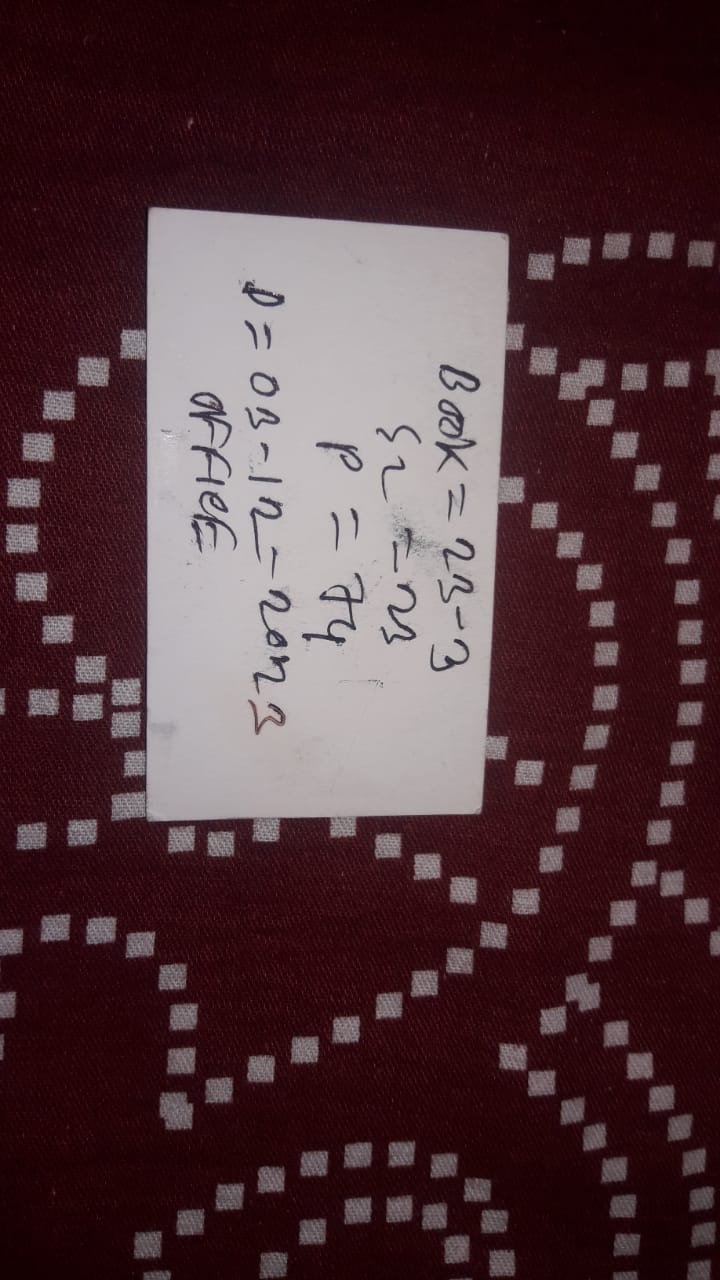 Book = 23-3
S2 = 23
P = 74
D = 03-12-2023
OFFICE